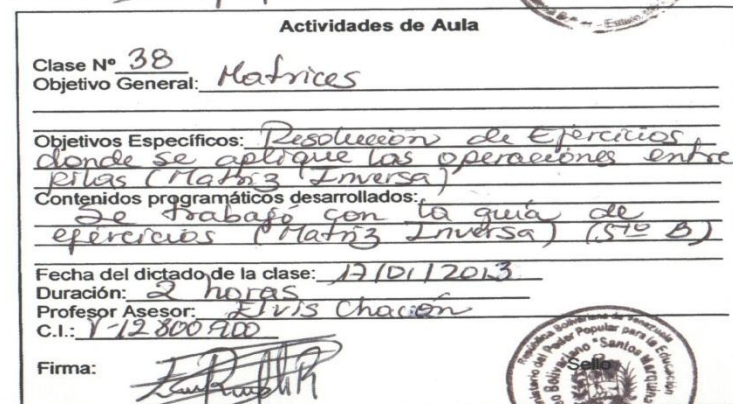 Actividades de Aula
Clase Nº 38
Objetivo General: Matrices
Objetivos Específicos: Resolución de Ejercicios
donde se aplique las operaciones entre
filas (Matriz Inversa)
Contenidos programáticos desarrollados:
Se trabajó con la guía de
ejercicios (Matriz Inversa) (5to B)
Fecha del dictado de la clase: 17/01/2013
Duración: 2 horas
Profesor Asesor: Elvis Chacón
C.I.: V-12800900
Firma:
Sello
República Bolivariana de Venezuela
Poder Popular para la Educación
Bolivariano "Santos Marquina